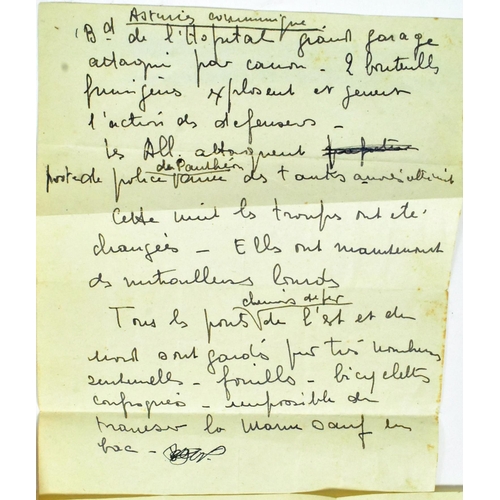 Asturies communique
Bd de l'Hopital grand garage
attaqué par canon - 2 bouteilles
fumigènes explosent et genent
l'action des defenseurs -
Les All. attaquent
du Panthéon
poste de police des tanks
Cette nuit les troupes ont été
changées - Elles ont maintenant
des mitrailleuses lourdes
chemins de fer
Tous les ponts de l'est et du
nord sont gardés par très nombreuses
sentinelles - fouilles - bicyclettes
confisquées - impossible de
traverser la Marne sauf en
bac -